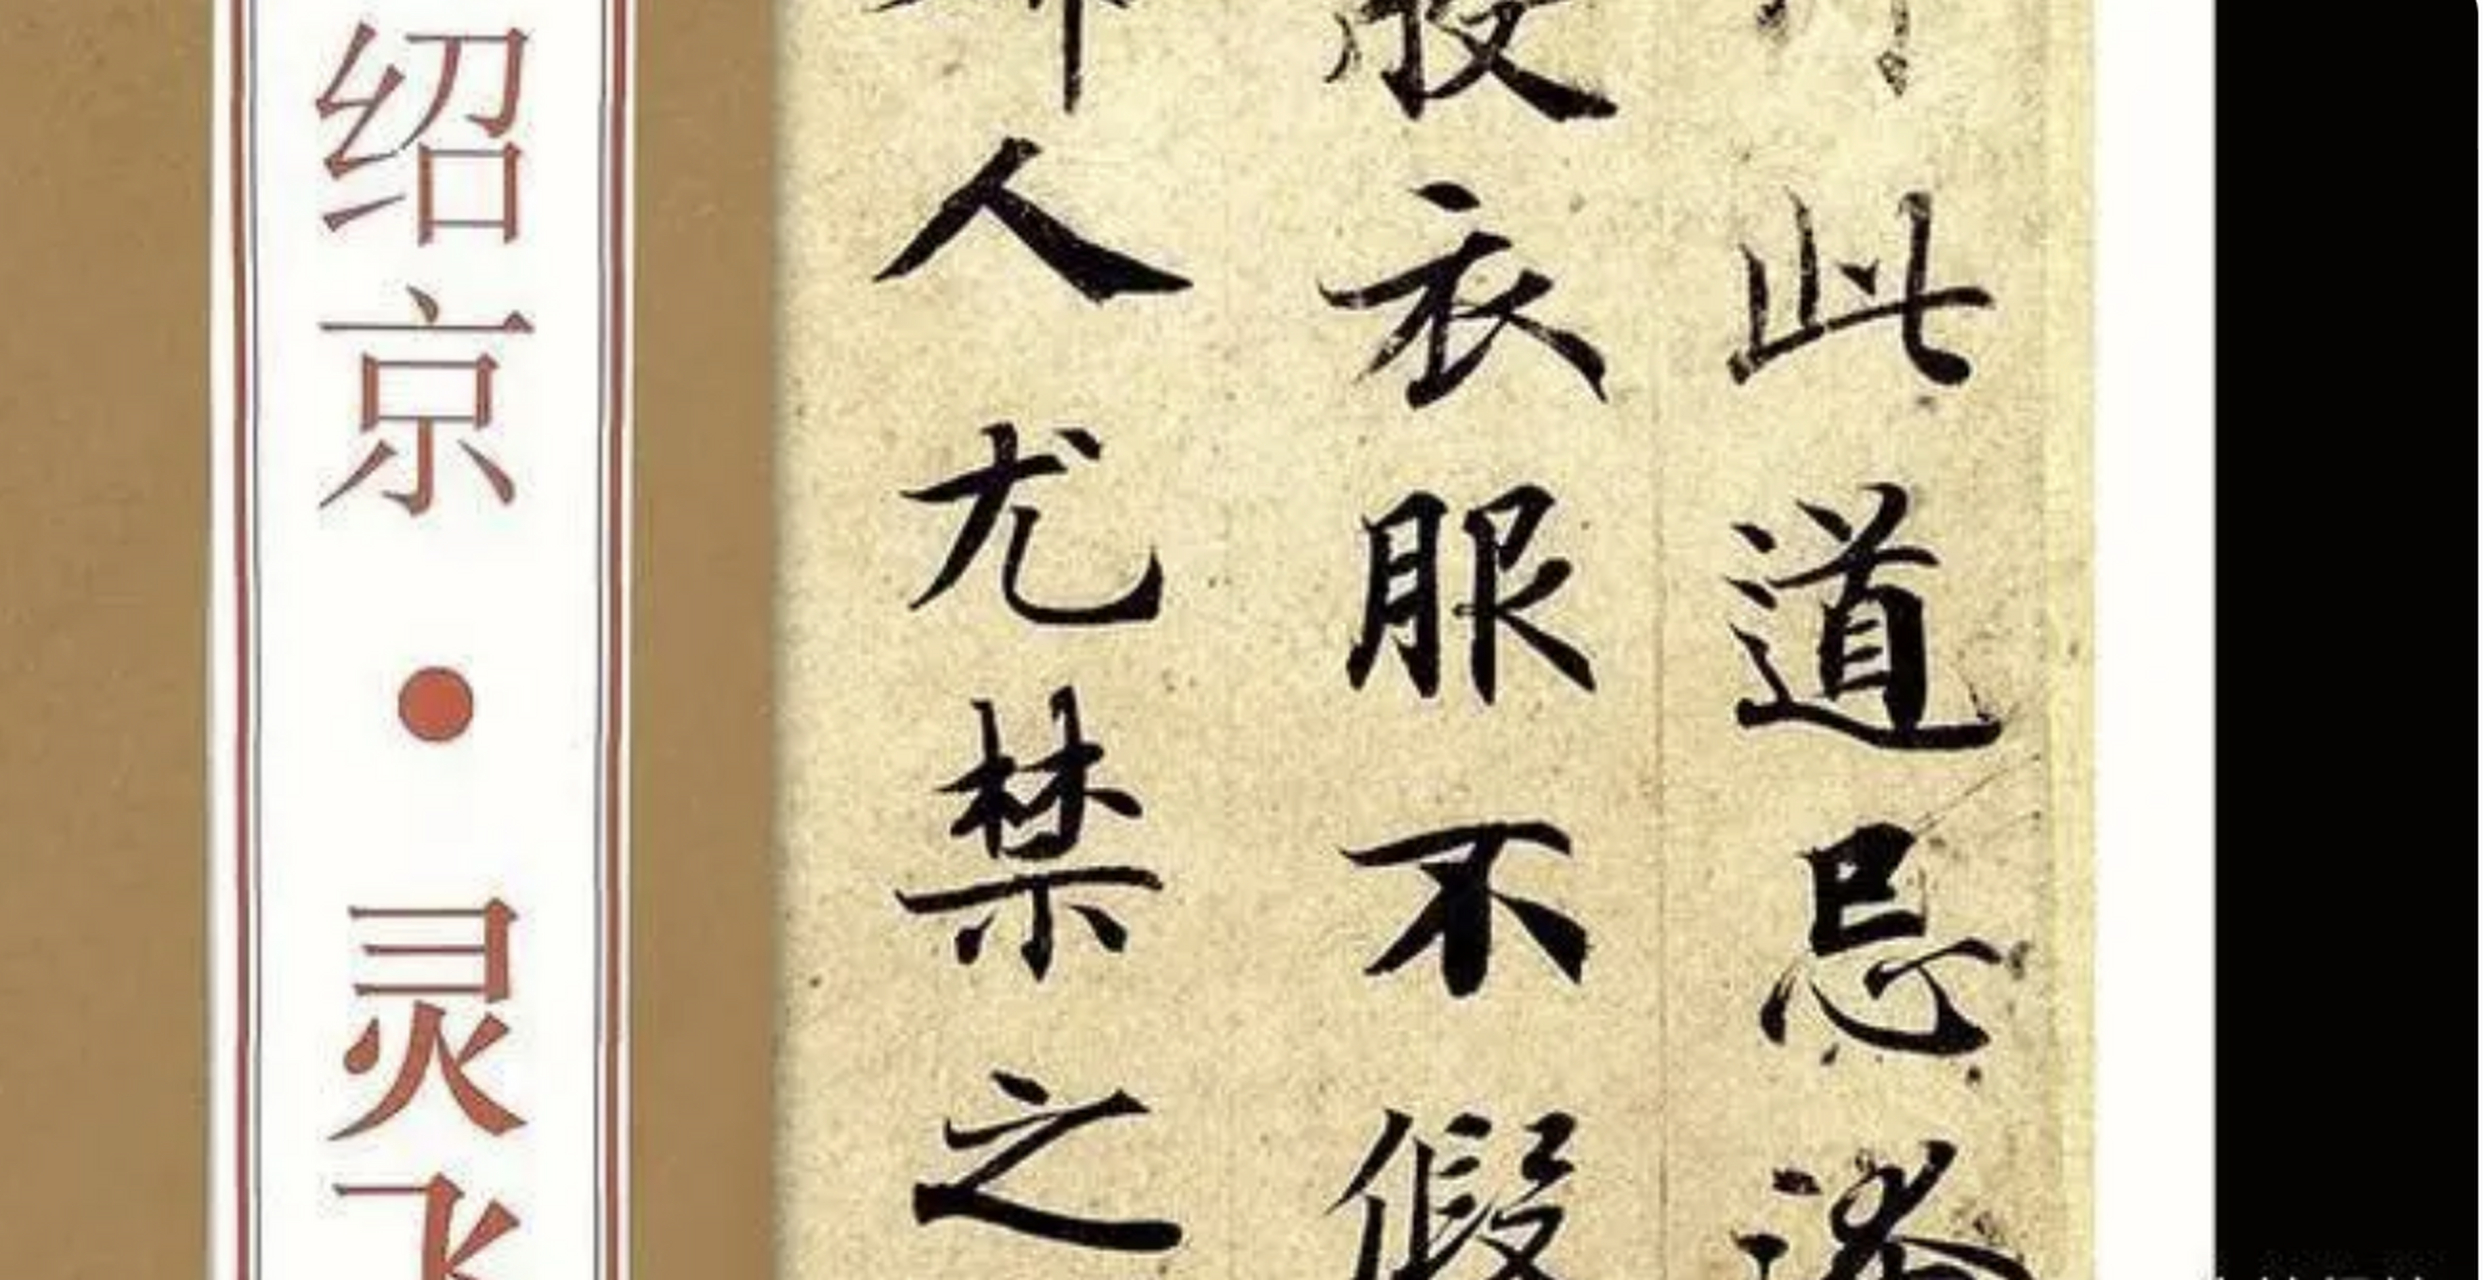 此道忌
衣服不假
人尤禁之
绍京·灵飞